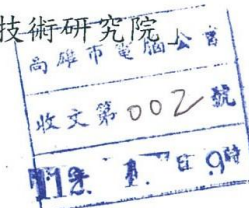 技術研究院
高雄市電腦公會
收文第002號
112. 1. 日.9時